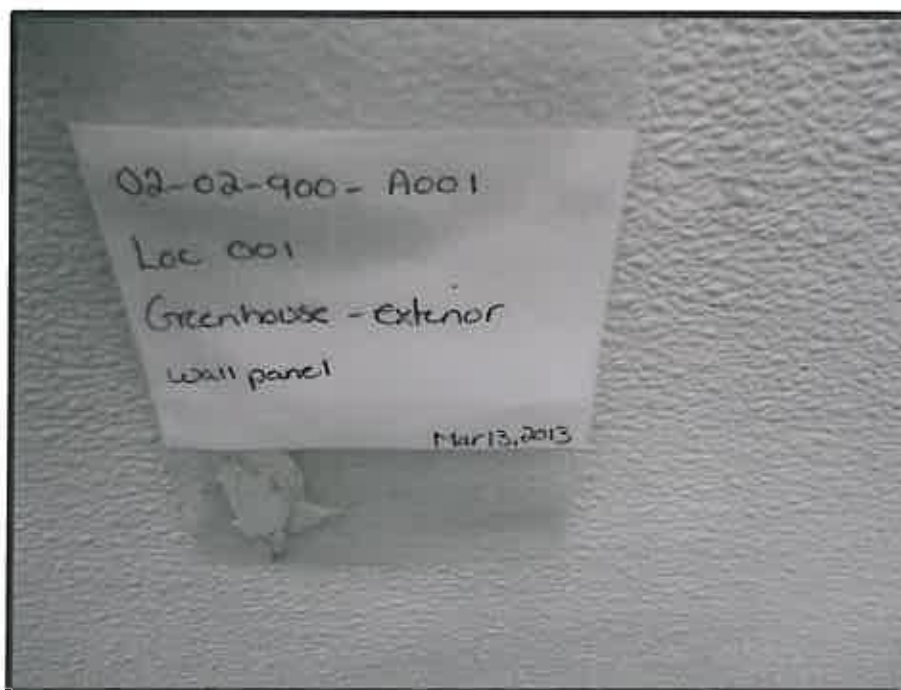 02-02-900- A001
Loc 001
Greenhouse - exterior
Wall panel
Mar 13, 2013